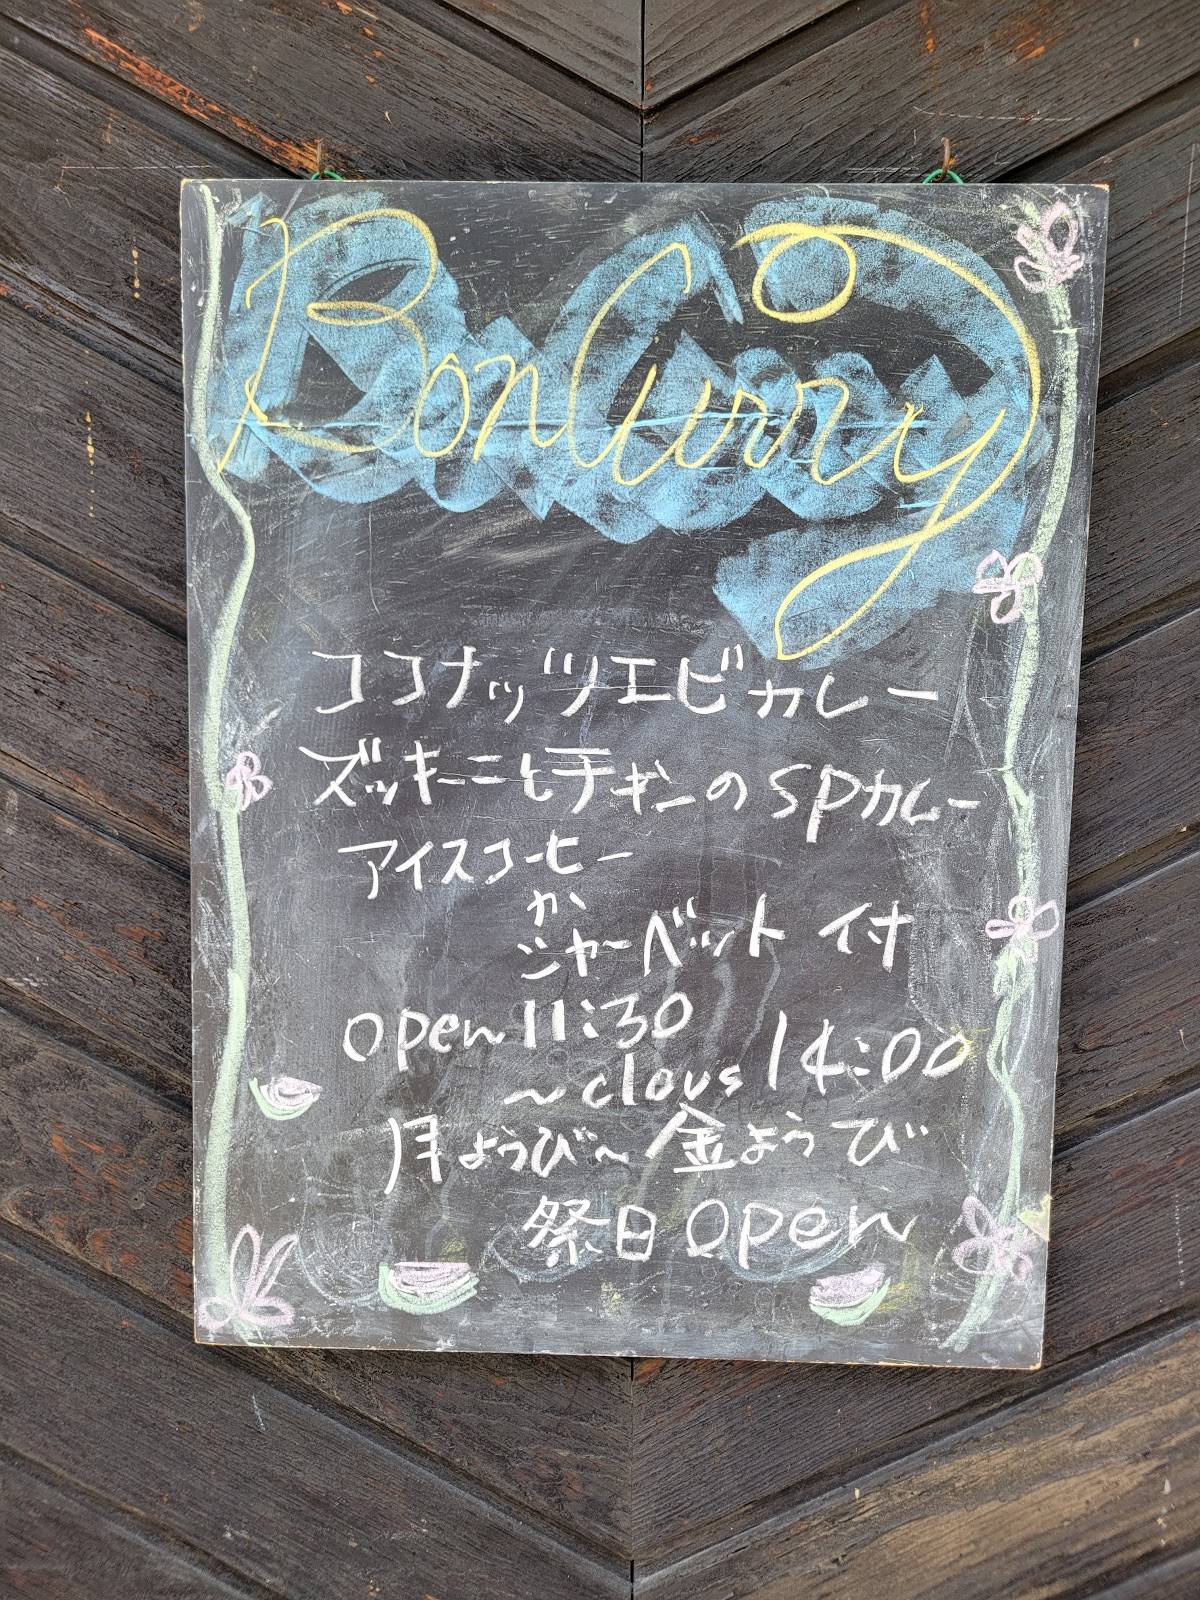 Bon Curry
ココナッツエビカレー
ズッキーニとチキンのSPカレー
アイスコーヒー
か
シャーベット 付
open 11:30
～clous 14:00
月ようび～金ようび
祭日open